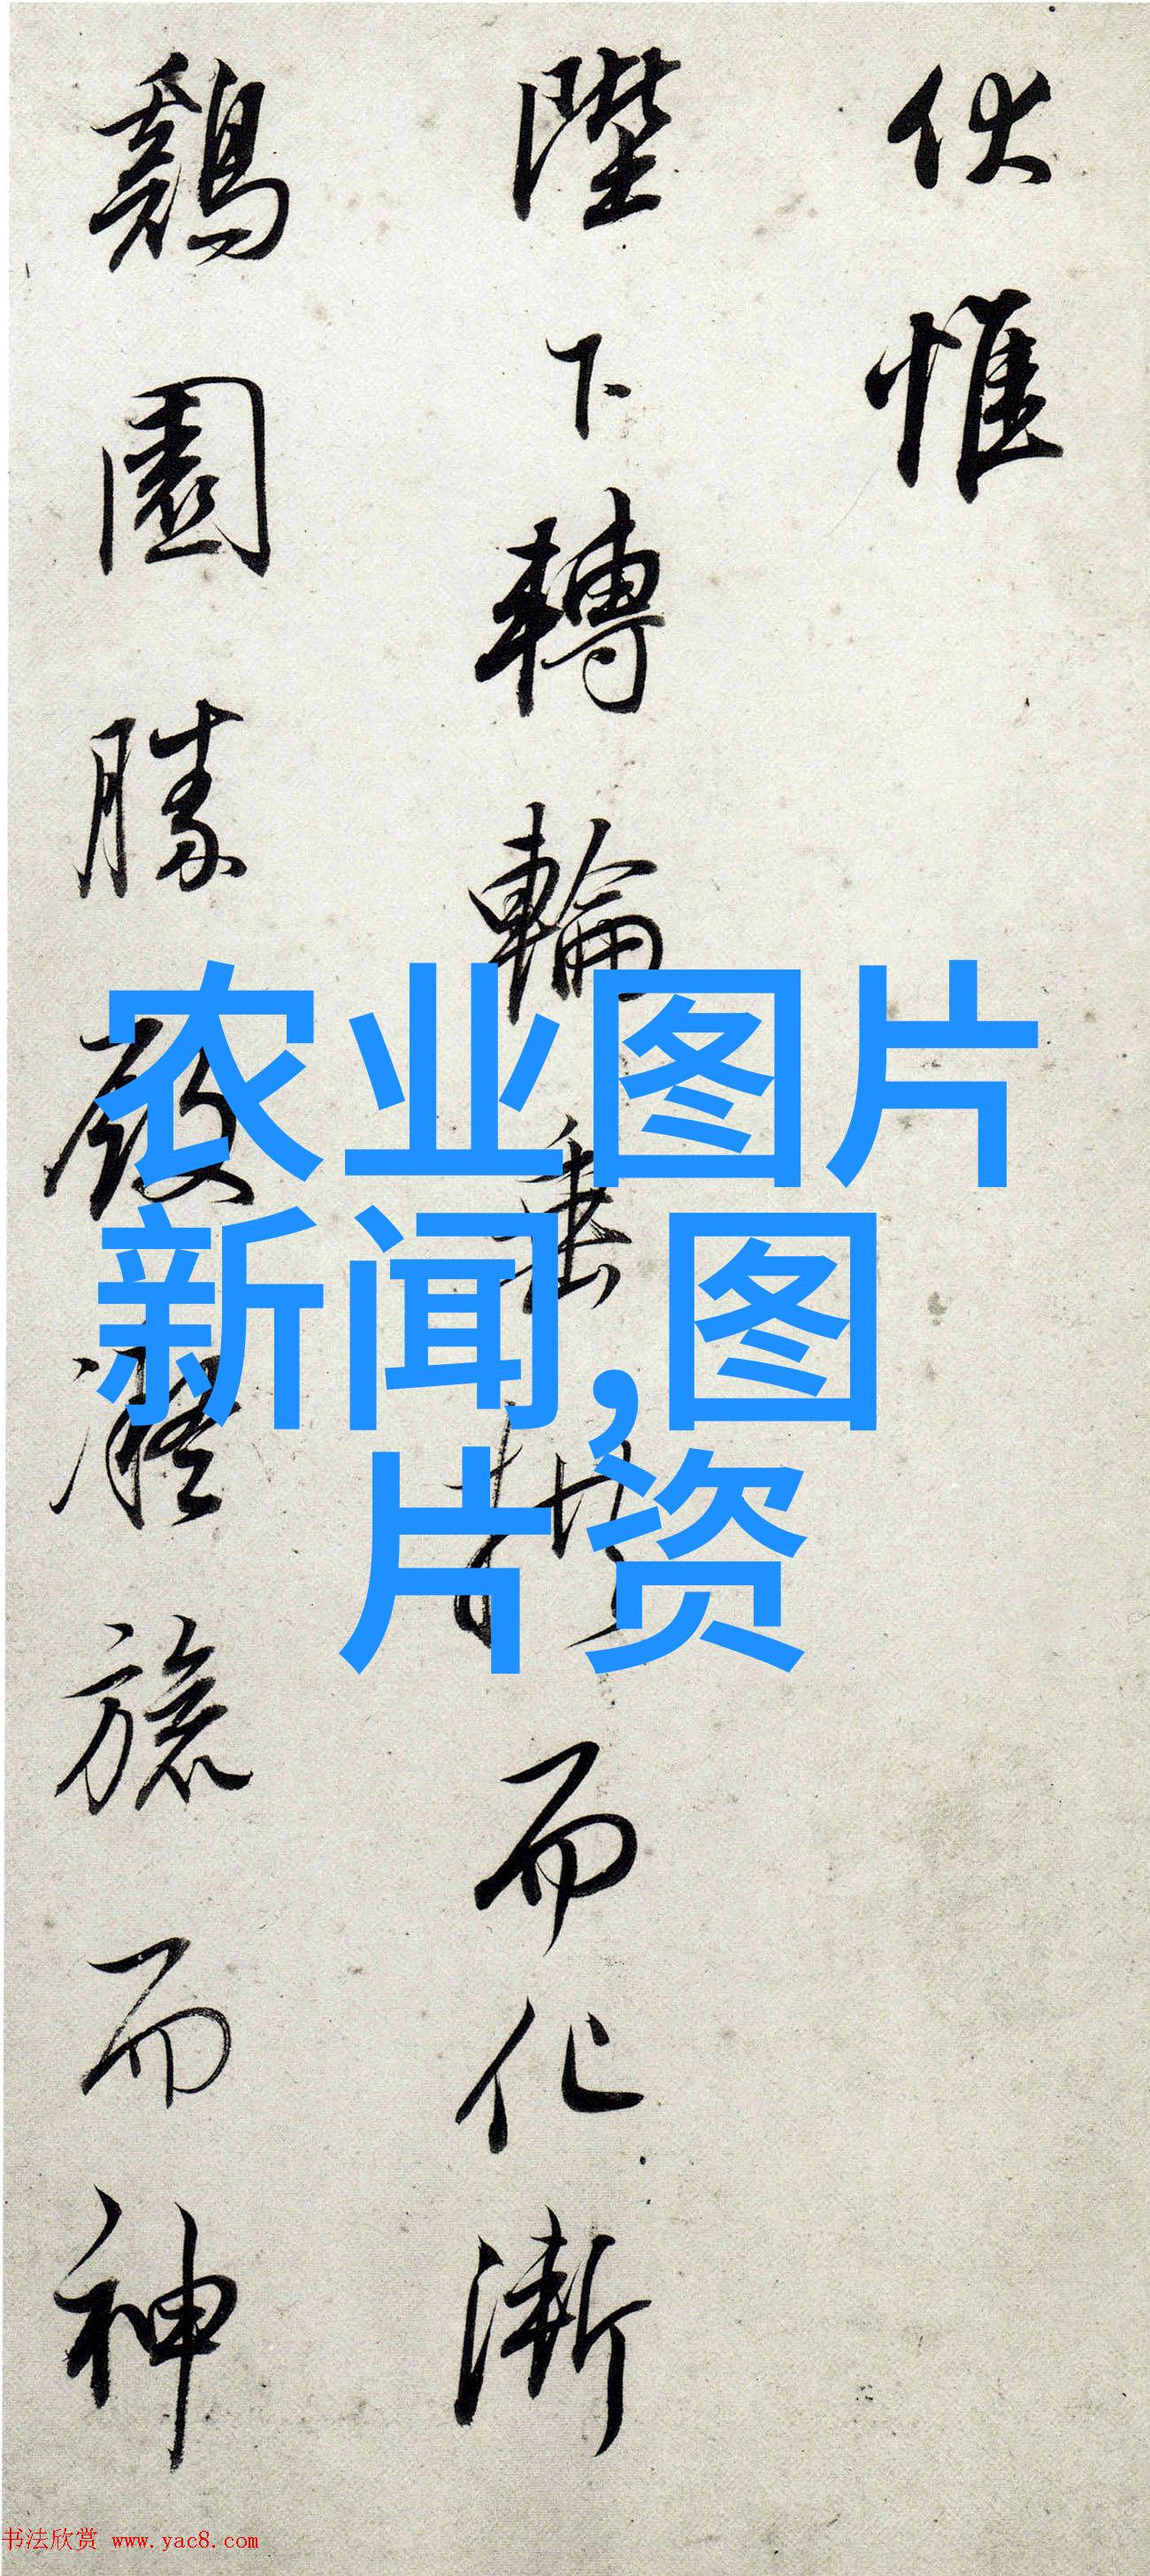 伏惟
陛下轉輪垂拱而化漸
鷄園勝殿凝旒而神
农业图片
新闻,图
片资
书法欣赏 www.yac8.com